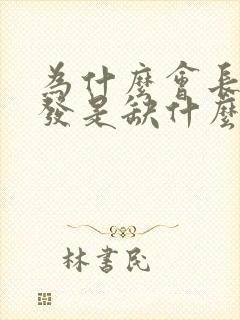 為什麼會長
發是缺什麼
林書民